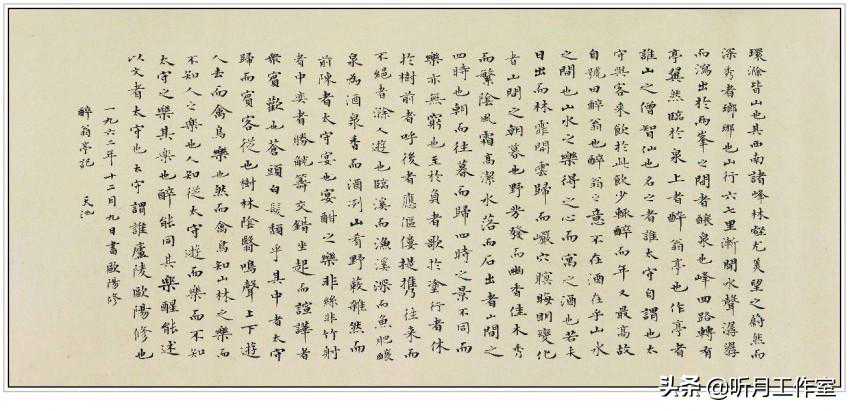 環滁皆山也其西南諸峰林壑尤美望之蔚然而
深秀者瑯琊也山行六七里漸聞水聲潺潺
而瀉出於兩峯之間者釀泉也峰回路轉有
亭翼然臨於泉上者醉翁亭也作亭者
誰山之僧智仙也名之者誰太守自謂也太
守與客來飲於此飲少輒醉而年又最高故
自號曰醉翁也醉翁之意不在酒在乎山水
之間也山水之樂得之心而寓之酒也若夫
日出而林霏開雲歸而巖穴暝晦明變化
者山間之朝暮也野芳發而幽香佳木秀
而繁陰風霜高潔水落而石出者山間之
四時也朝而往暮而歸四時之景不同而
樂亦無窮也至於負者歌於塗行者休
於樹前者呼後者應傴僂提攜往來而
不絕者滁人遊也臨溪而漁溪深而魚肥釀
泉為酒泉香而酒洌山肴野蔌雜然而
前陳者太守宴也宴酣之樂非絲非竹射
者中弈者勝觥籌交錯坐起而諠譁者
衆賓歡也蒼頭白髮頹乎其中者太守
歸而賓客從也樹林陰翳鳴聲上下遊
人去而禽鳥樂也然而禽鳥知山林之樂而
不知人之樂也人知從太守遊而樂而不知
太守之樂其樂也醉能同其樂醒能述
以文者太守也太守謂誰廬陵歐陽修也
一九六二年十二月九日書歐陽修
醉翁亭記 天池
头条 @听月工作室